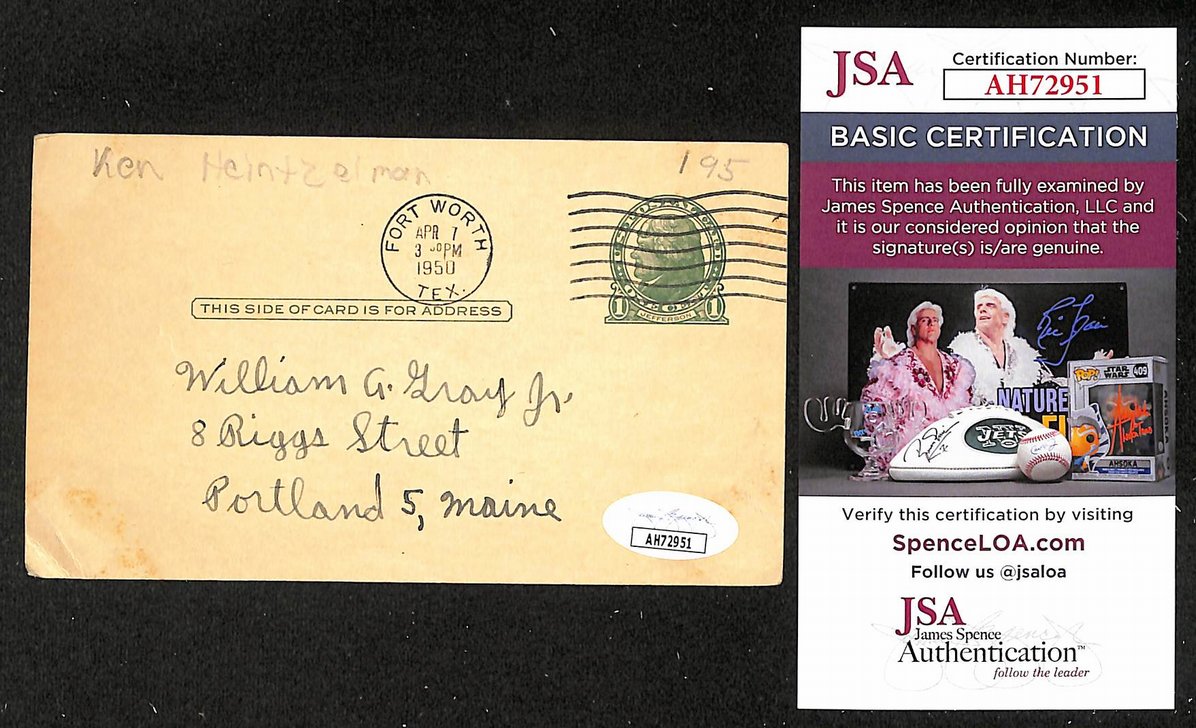 Ken Heintzelman
195
FORT WORTH
APR 7
3 30 PM
1950
TEX.
1 1
JEFFERSON
THIS SIDE OF CARD IS FOR ADDRESS
William G. Gray Jr.
8 Riggs Street
Portland 5, Maine
AH72951
JSA
Certification Number:
AH72951
BASIC CERTIFICATION
This item has been fully examined by
James Spence Authentication, LLC and
it is our considered opinion that the
signature(s) is/are genuine.
NATURE
JETS
POP!
STAR WARS
409
AHSOKA
AHSOKA
Verify this certification by visiting
SpenceLOA.com
Follow us @jsaloa
JSA
James Spence
Authentication™
follow the leader